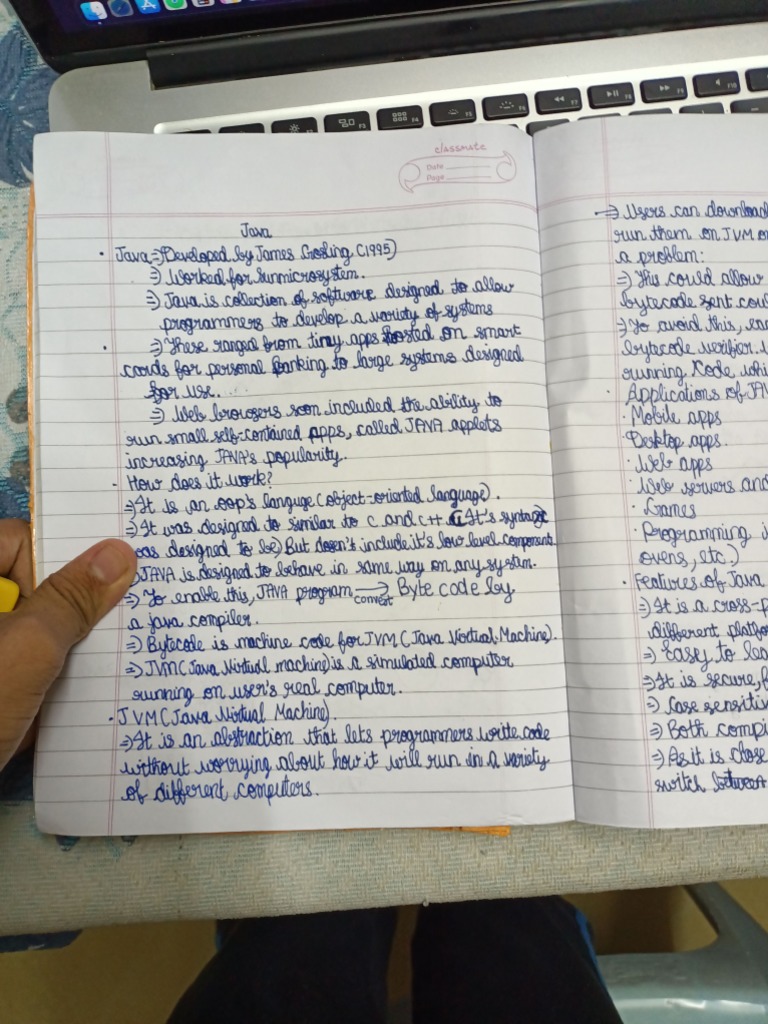 classmate
Date
Page
Java
· Java ⇒ Developed by James Gosling (1995)
⇒ Worked for Sunmicrosystem.
⇒ Java is collection of software designed to allow
programmers to develop a variety of systems
· ⇒ These ranged from tiny apps hosted on smart
cards for personal banking to large systems designed
for use.
⇒ Web browsers soon included the ability to
run small self-contained apps, called JAVA applets
increasing JAVA's popularity.
· How does it work?
⇒ It is an oop's languge (object-oriented language).
⇒ It was designed to similar to C and C++ (It's syntax
was designed to be) But doesn't include it's low level component
⇒ JAVA is designed to behave in same way on any system.
⇒ To enable this, JAVA program ⟶ Byte code by
convert
a java compiler.
⇒ Bytecode is machine code for JVM (Java Virtual Machine).
⇒ JVM (Java Virtual machine) is a simulated computer
running on user's real computer.
· JVM (Java Virtual Machine).
⇒ It is an abstraction that lets programmers write code
without worrying about how it will run in a variety
of different computers.
⇒ Users can download
run them on JVM on
a problem:
⇒ This could allow
bytecode sent
⇒ To avoid this,
bytecode verifier
running Code
· Applications of
· Mobile apps
· Desktop apps.
· Web apps
· Web servers and
· Games
· Programming
ovens, etc.)
· Features of Java
⇒ It is a cross-
different
⇒ Easy to
⇒ It is secure,
⇒ Case
⇒ Both
⇒ As it is close
switch between